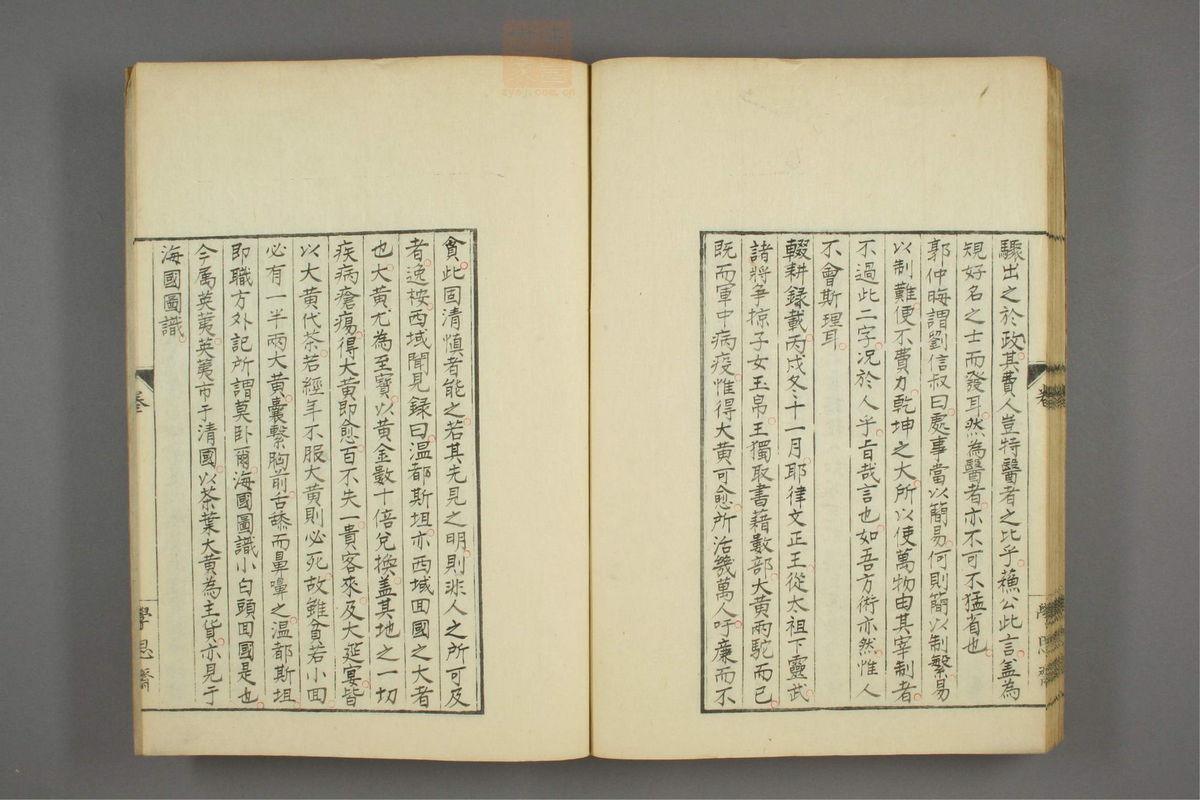 驟出之於政其費人豈特醫者之比乎蘓公此言盖為
規好名之士而發耳然為醫者亦不可不猛省也
郭仲晦謂劉信叔曰處事當以簡易何則簡以制繁易
以制難便不費力乾坤之大所以使萬物由其宰制者
不過此二字况於人乎旨哉言也如吾方術亦然惟人
不會斯理耳
輟耕録載丙戌冬十一月耶律文正王從太祖下靈武
諸將爭掠子女玉帛王獨取書藉數部大黄兩駝而已
既而軍中病疫惟得大黄可愈所活幾萬人吁廉而不
貪此固清慎者能之若其先見之明則非人之所可及
者逸桉西域聞見録曰温都斯坦亦西域回國之大者
也大黄尤為至寳以黄金數十倍兌換盖其地之一切
疾病瘡瘍得大黄即愈百不失一貴客來及大筵宴皆
以大黄代茶若經年不服大黄則必死故雖貧若小回
必有一半兩大黄囊繫胸前舌舔而鼻嗅之温都斯坦
即職方外記所謂莫卧爾海國圖識小白頭回國是也
今属英荑英荑市于清國以茶葉大黄為主貨亦見于
海國圖識
卷三
學思齋